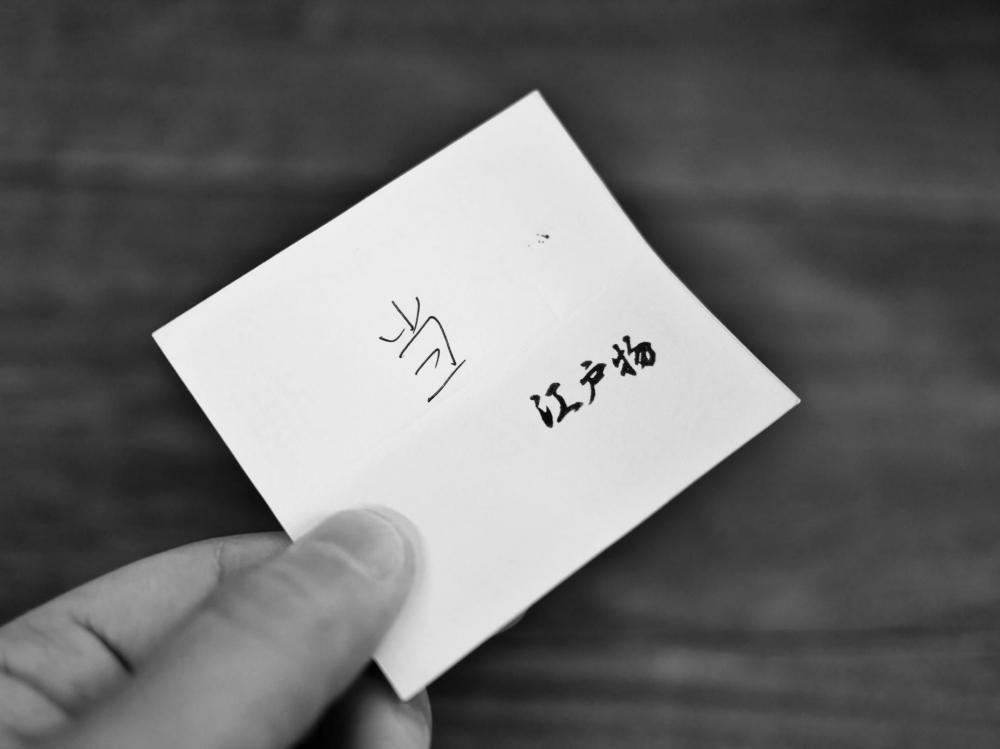 当
江戸物